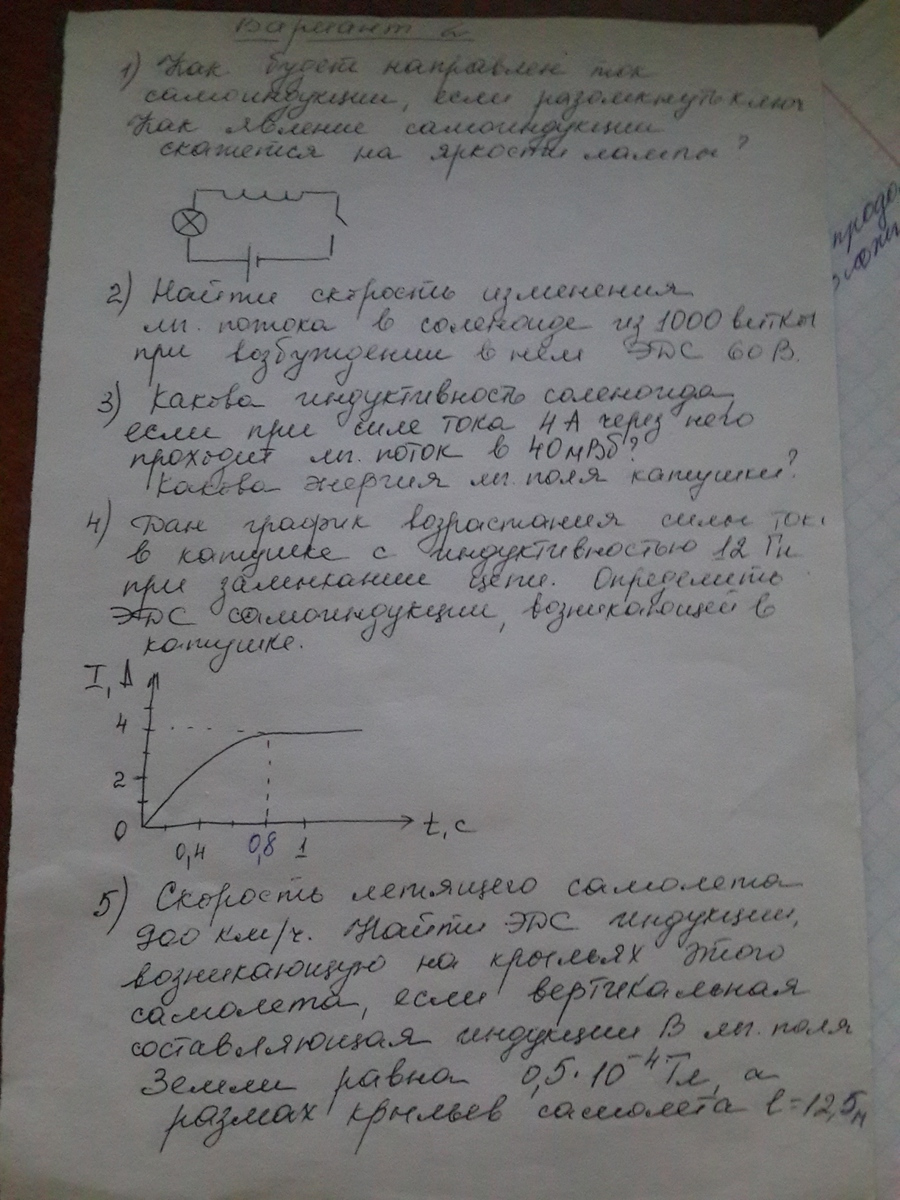 Вариант 2
1) Как будет направлен ток
самоиндукции, если разомкнуть ключ
Как явление самоиндукции
скажется на яркости лампы?
2) Найти скорость изменения
мг. потока в соленоиде из 1000 витков
при возбуждении в нём ЭДС 60 В.
3) Какова индуктивность соленоида
если при силе тока 4 А через него
проходит мг. поток в 40 мВб?
Какова энергия мг. поля катушки?
4) Дан график возрастания силы ток
в катушке с индуктивностью 12 Гн
при замыкании цепи. Определить
ЭДС самоиндукции, возникающей в
катушке.
I, А
4
2
0
0,4 0,8 1
t, с
5) Скорость летящего самолета
900 км/ч. Найти ЭДС индукции,
возникающую на крыльях этого
самолета, если вертикальная
составляющая индукции В мг. поля
Земли равна 0,5·10⁻⁴ Тл, а
размах крыльев самолета l = 12,5 м